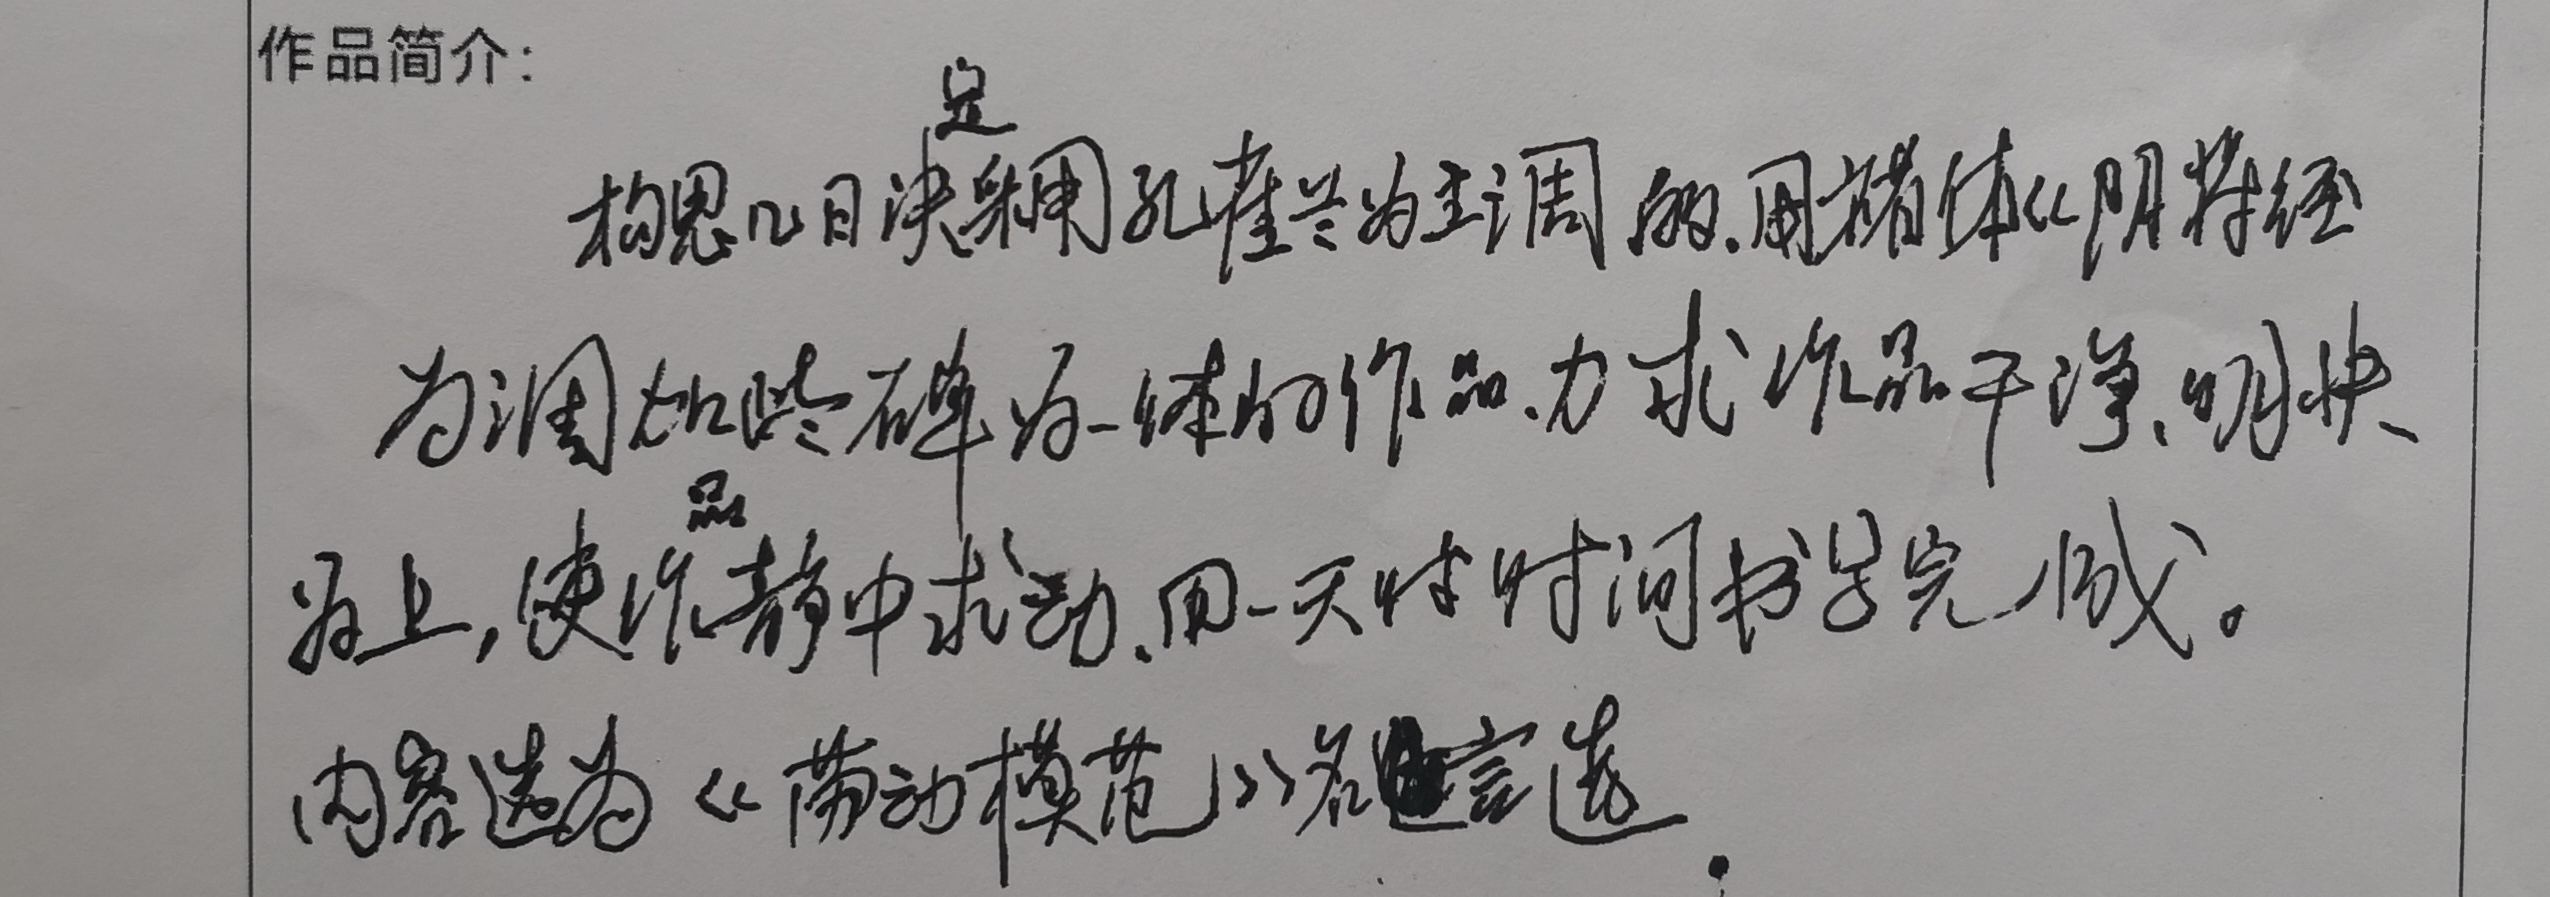 作品简介：
构思几日决定采用孔雀兰为主调的.用褚体《阴符经
为调加些碑为一体的作品.力求作品干净、明快
为上，使作品静中求动.用一天时时间书写完成。
内容选为《劳动模范》名言选.